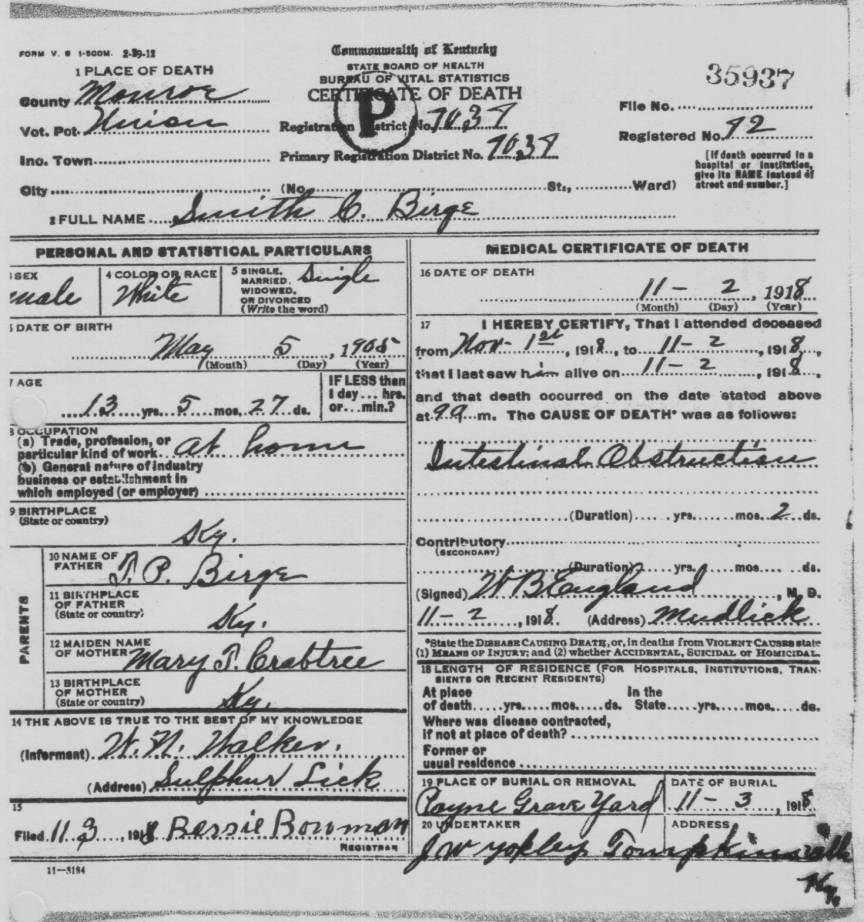 FORM V. S 1-500M. 2-29-12
Commonwealth of Kentucky
STATE BOARD OF HEALTH
BUREAU OF VITAL STATISTICS
CERTIFICATE OF DEATH
P
35937
1 PLACE OF DEATH
County Monroe
File No.
Vot. Pct. Union
Registration District No. 7038
Registered No. 92
Inc. Town
Primary Registration District No. 7038
[If death occurred in a hospital or institution, give its NAME instead of street and number.]
City (No. St., Ward)
2 FULL NAME Smith C. Birge
PERSONAL AND STATISTICAL PARTICULARS
SEX male
4 COLOR OR RACE White
5 SINGLE, MARRIED, WIDOWED, OR DIVORCED (Write the word) Single
DATE OF BIRTH
May 5, 1905
(Month) (Day) (Year)
7 AGE
13 yrs. 5 mos. 27 ds.
IF LESS than 1 day... hrs. or... min.?
8 OCCUPATION
(a) Trade, profession, or particular kind of work at home
(b) General nature of industry business or establishment in which employed (or employer)
9 BIRTHPLACE
(State or country)
Ky.
PARENTS
10 NAME OF FATHER T. P. Birge
11 BIRTHPLACE OF FATHER (State or country) Ky.
12 MAIDEN NAME OF MOTHER Mary T. Crabtree
13 BIRTHPLACE OF MOTHER (State or country) Ky.
14 THE ABOVE IS TRUE TO THE BEST OF MY KNOWLEDGE
(Informant) W. N. Walker.
(Address) Sulphur Lick
15
Filed 11 3, 1918 Bessie Bowman
REGISTRAR
11—3184
MEDICAL CERTIFICATE OF DEATH
16 DATE OF DEATH
11 - 2, 1918
(Month) (Day) (Year)
17 I HEREBY CERTIFY, That I attended deceased
from Nov - 1st, 1918, to 11 - 2, 1918,
that I last saw him alive on 11 - 2, 1918,
and that death occurred on the date stated above
at m. The CAUSE OF DEATH* was as follows:
Intestinal Obstruction
(Duration) yrs. mos. 2 ds.
Contributory
(SECONDARY)
(Duration) yrs. mos. ds.
(Signed) W B England, M. D.
11 - 2, 1918. (Address) Mudlick
*State the DISEASE CAUSING DEATH, or, in deaths from VIOLENT CAUSES state
(1) MEANS OF INJURY; and (2) whether ACCIDENTAL, SUICIDAL or HOMICIDAL.
18 LENGTH OF RESIDENCE (FOR HOSPITALS, INSTITUTIONS, TRANSIENTS OR RECENT RESIDENTS)
At place of death yrs. mos. ds. In the State yrs. mos. ds.
Where was disease contracted, if not at place of death?
Former or usual residence
19 PLACE OF BURIAL OR REMOVAL
Payne Grave Yard
DATE OF BURIAL
11 - 3, 1918
20 UNDERTAKER
J W Yokley
ADDRESS
Tompkinsville
Ky.